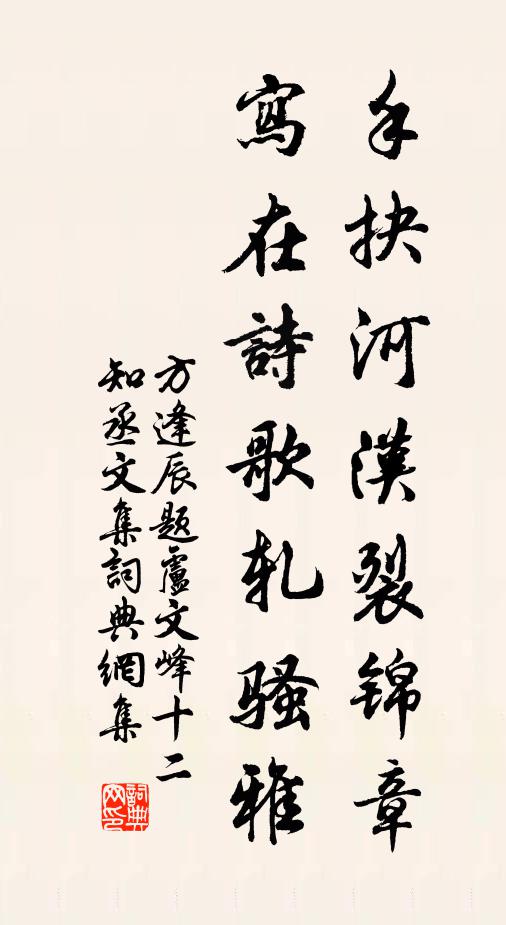 手抉河漢裂锦章
寫在詩歌軋騷雅
方逢辰题盧文峰十二
知丞文集詞典網集
詞典网印